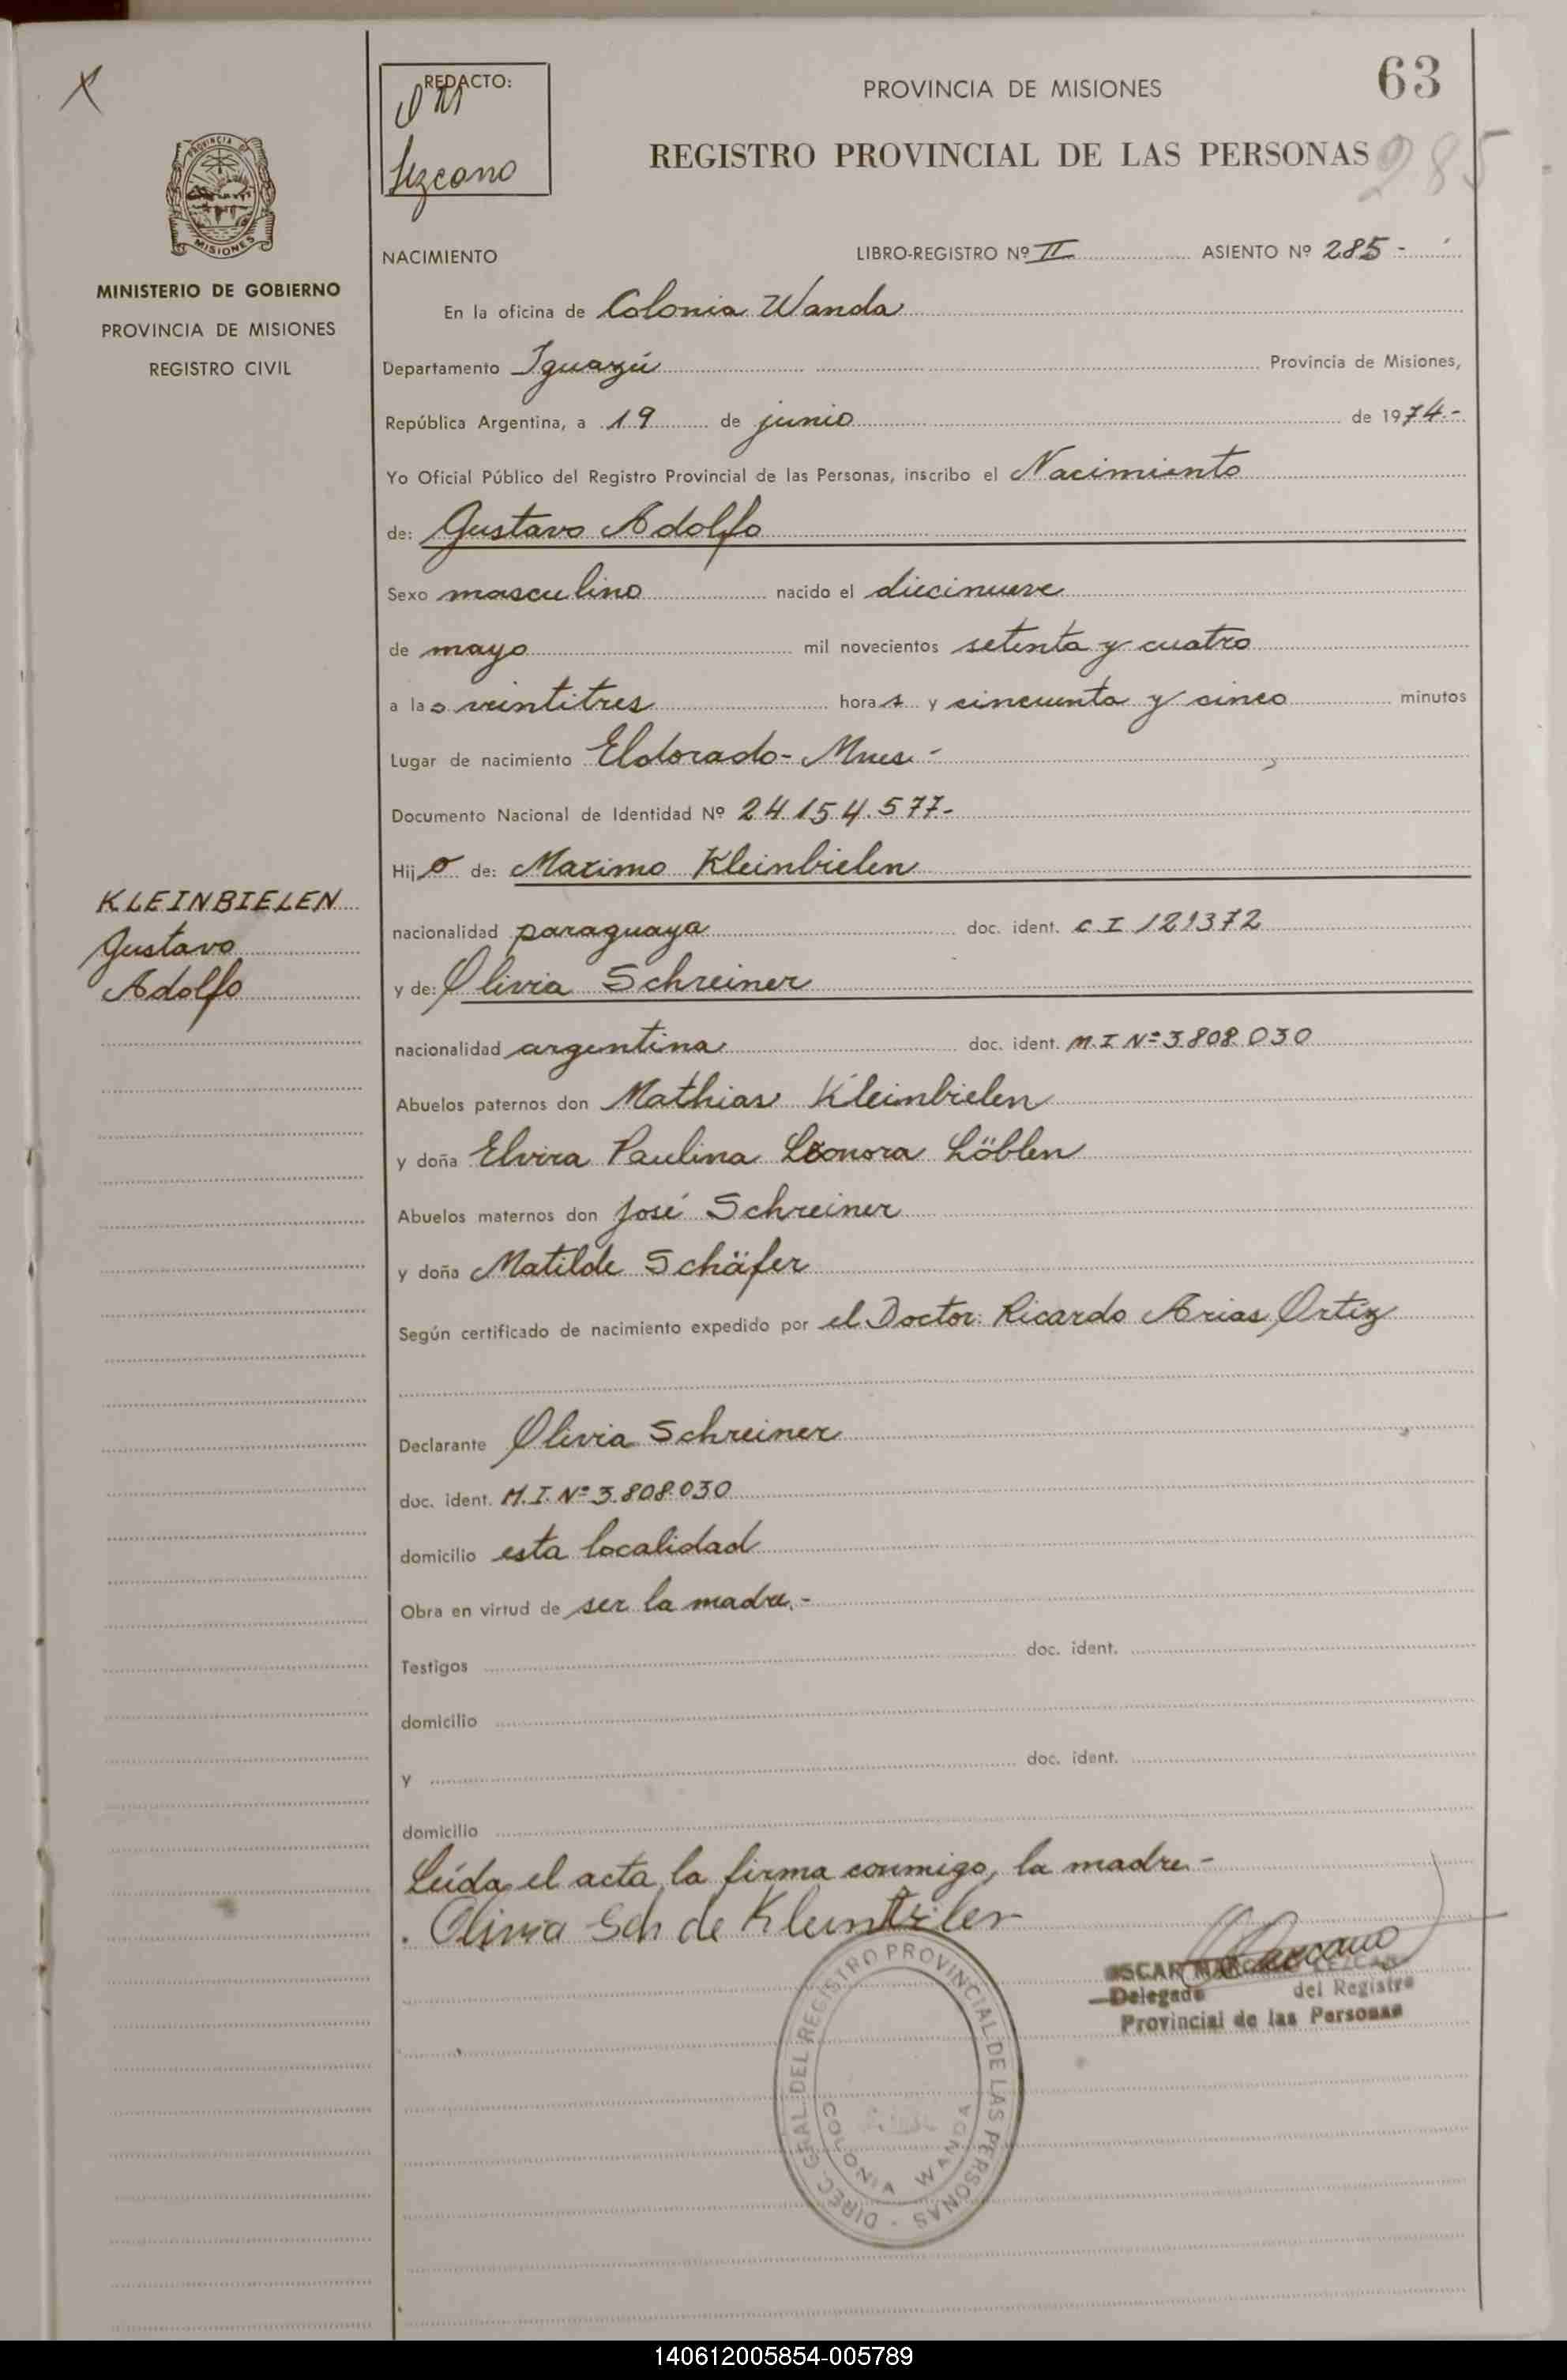 63
PROVINCIA DE MISIONES
REDACTO:
Lezcano
REGISTRO PROVINCIAL DE LAS PERSONAS
285
PROVINCIA DE
MISIONES
MINISTERIO DE GOBIERNO
PROVINCIA DE MISIONES
REGISTRO CIVIL
NACIMIENTO LIBRO-REGISTRO Nº II ASIENTO Nº 285-
En la oficina de Colonia Wanda
Departamento Iguazú Provincia de Misiones,
República Argentina, a 19 de junio de 1974.-
Yo Oficial Público del Registro Provincial de las Personas, inscribo el Nacimiento
de: Gustavo Adolfo
Sexo masculino nacido el diecinueve
de mayo mil novecientos setenta y cuatro
a las veintitres horas y cincuenta y cinco minutos
Lugar de nacimiento Eldorado- Mnes.-
Documento Nacional de Identidad Nº 24.154.577-
Hijo de: Maximo Kleinbielen
KLEINBIELEN
Gustavo
Adolfo
nacionalidad paraguaya doc. ident. C.I 121372
y de: Olivia Schreiner
nacionalidad argentina doc. ident. M.I Nº 3.808.030
Abuelos paternos don Mathias Kleinbielen
y doña Elvira Paulina Leonora Löblen
Abuelos maternos don José Schreiner
y doña Matilde Schäfer
Según certificado de nacimiento expedido por el Doctor: Ricardo Arias Ortíz
Declarante Olivia Schreiner
doc. ident. M.I. Nº 3.808.030
domicilio esta localidad
Obra en virtud de ser la madre.-
Testigos doc. ident.
domicilio
y doc. ident.
domicilio
Leída el acta, la firma conmigo, la madre.-
Olivia Sch de
OSCAR LEZCANO
Delegado del Registro
Provincial de las Personas
DIREC. GRAL. DEL REGISTRO PROVINCIAL DE LAS PERSONAS -
COLONIA WANDA
140612005854-005789